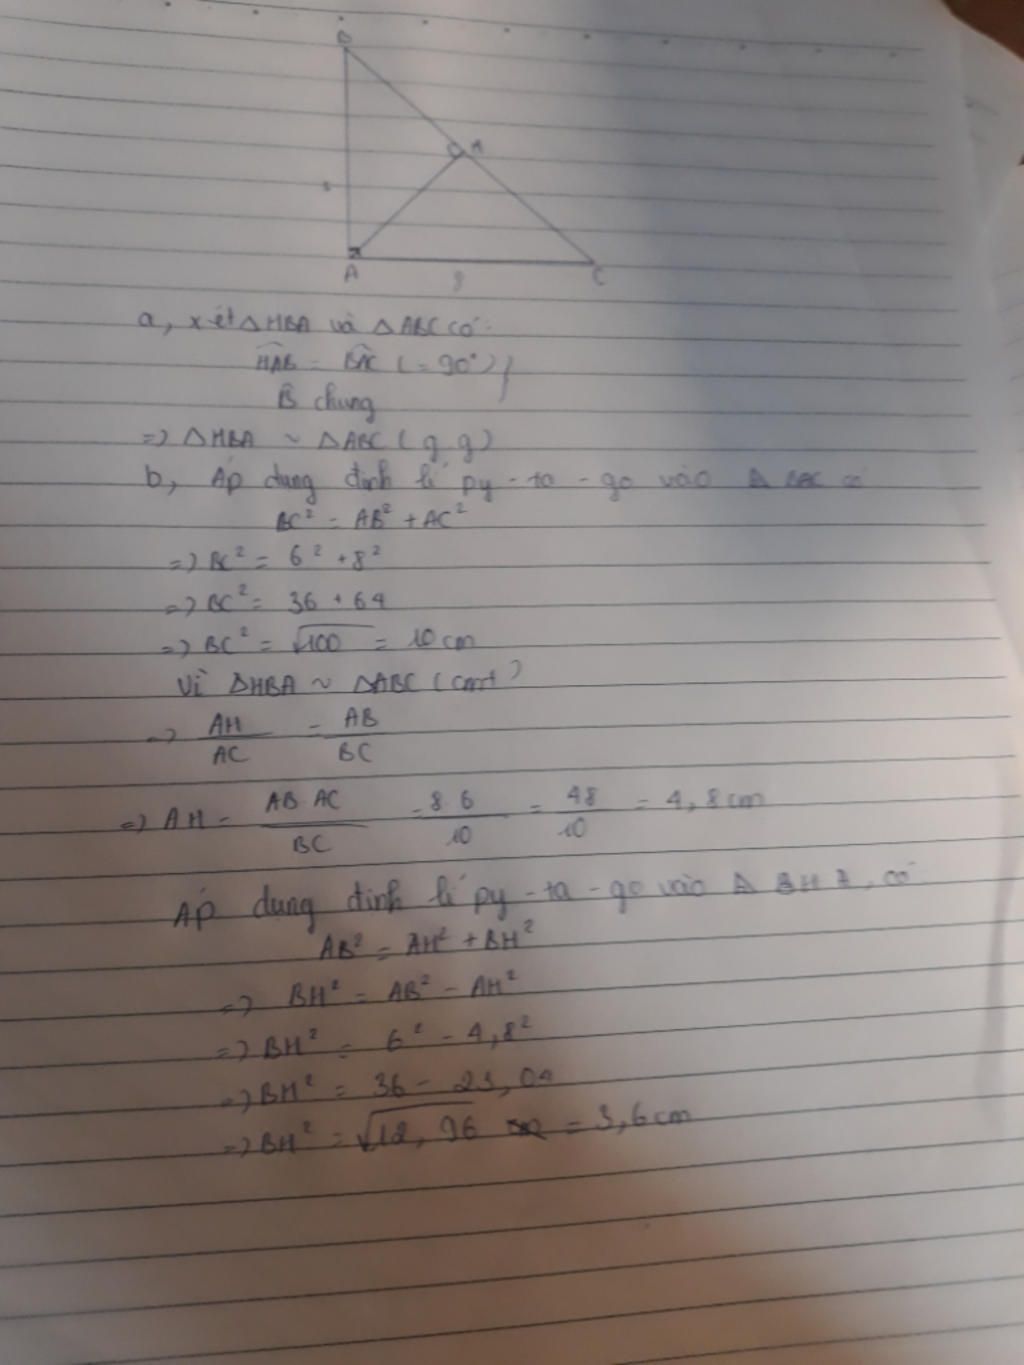 B
H
A
8
C
a, xét △HBA và △ABC có:
HAB = BAC (= 90°) }
B chung
=> △HBA ~ △ABC (g.g)
b, Áp dụng định lí py-ta-go vào △ BAC có
BC² = AB² + AC²
=> BC² = 6² + 8²
=> BC² = 36 + 64
=> BC² = √100 = 10 cm
Vì △HBA ~ △ABC (cmt)
=> AH/AC = AB/BC
=> AH = AB.AC/BC = 8.6/10 = 48/10 = 4,8 cm
Áp dụng định lí py-ta-go vào △ BHA, có
AB² = AH² + BH²
=> BH² = AB² - AH²
=> BH² = 6² - 4,8²
=> BH² = 36 - 23,04
=> BH² = √12,96 = 3,6 cm